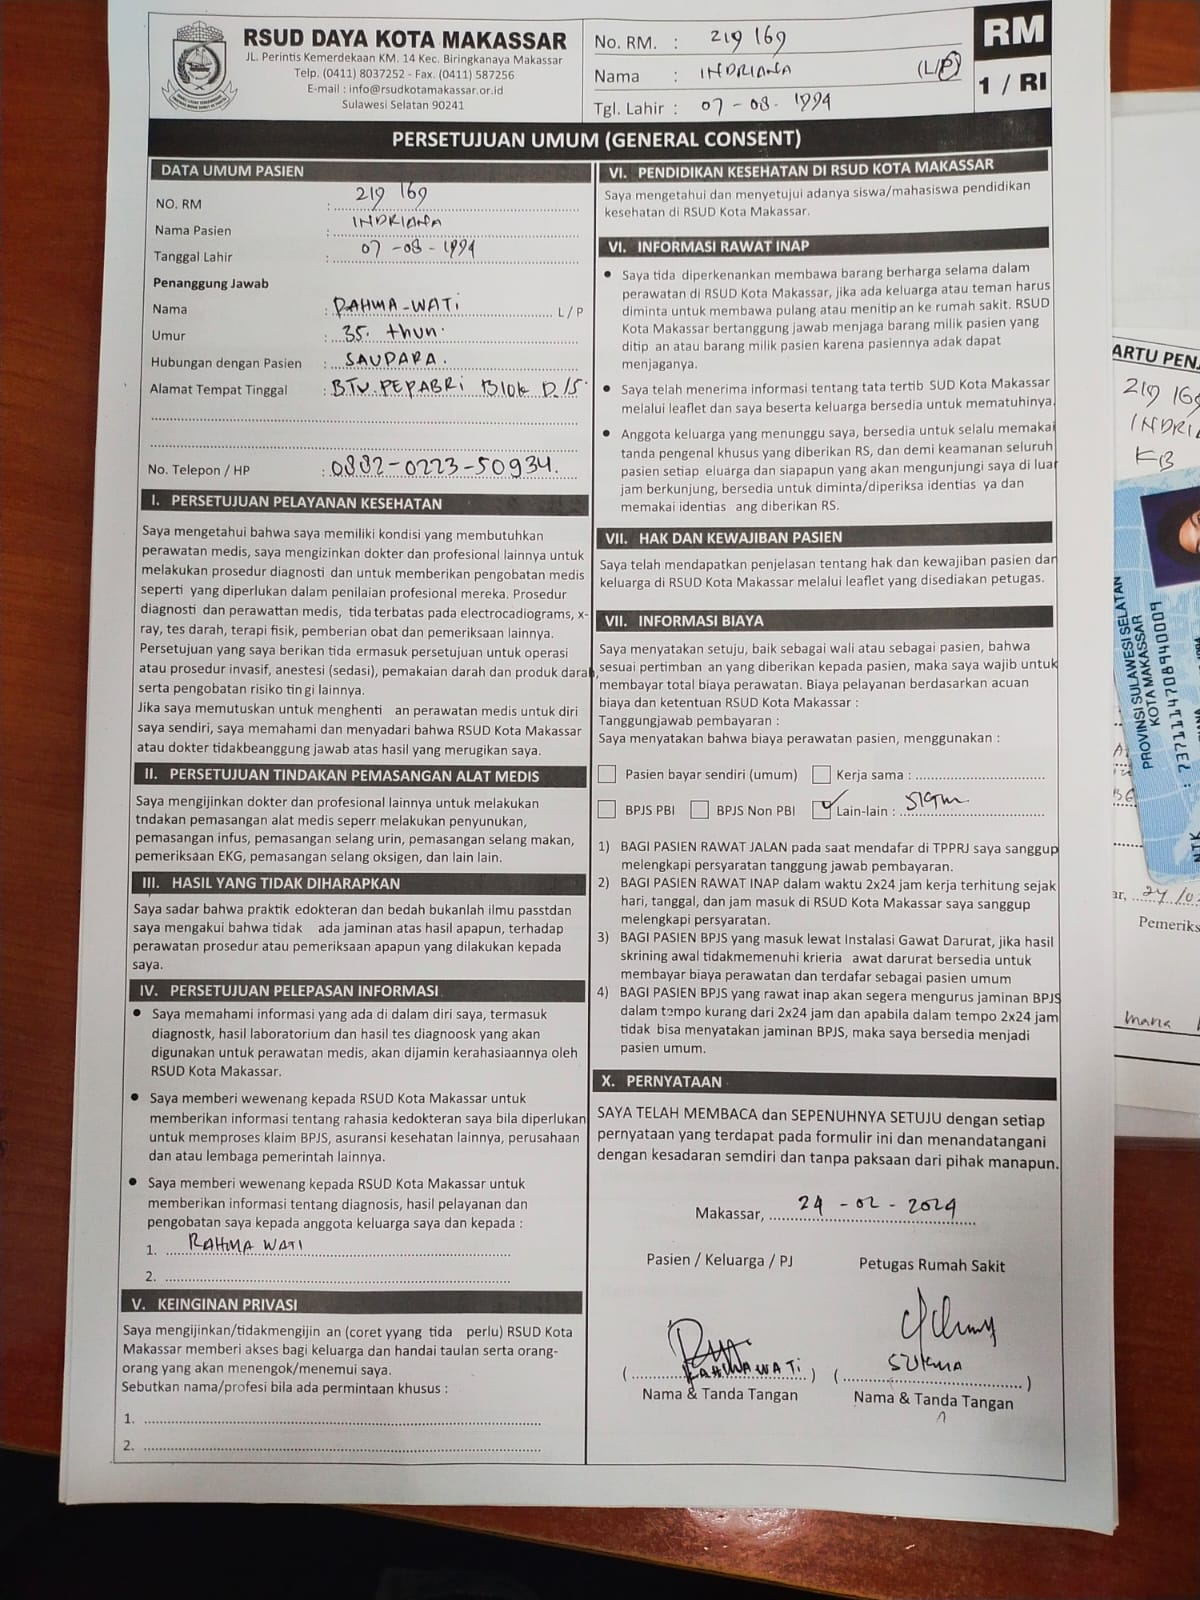 RSUD DAYA KOTA MAKASSAR
JL. Perintis Kemerdekaan KM. 14 Kec. Biringkanaya Makassar
Telp. (0411) 8037252 - Fax. (0411) 587256
E-mail : info@rsudkotamakassar.or.id
Sulawesi Selatan 90241
No. RM. : 219 169
Nama : INDRIANA (L/P)
Tgl. Lahir : 07-08-1994
RM
1 / RI
PERSETUJUAN UMUM (GENERAL CONSENT)
DATA UMUM PASIEN
NO. RM : 219 169
Nama Pasien : INDRIANA
Tanggal Lahir : 07-08-1994
Penanggung Jawab
Nama : RAHMA-WATI L / P
Umur : 35. thun.
Hubungan dengan Pasien : SAUDARA.
Alamat Tempat Tinggal : BTN.PEPABRI Blok D./5
No. Telepon / HP : 0882-0223-50934.
I. PERSETUJUAN PELAYANAN KESEHATAN
Saya mengetahui bahwa saya memiliki kondisi yang membutuhkan
perawatan medis, saya mengizinkan dokter dan profesional lainnya untuk
melakukan prosedur diagnosti dan untuk memberikan pengobatan medis
seperti yang diperlukan dalam penilaian profesional mereka. Prosedur
diagnosti dan perawattan medis, tida terbatas pada electrocadiograms, x-
ray, tes darah, terapi fisik, pemberian obat dan pemeriksaan lainnya.
Persetujuan yang saya berikan tida ermasuk persetujuan untuk operasi
atau prosedur invasif, anestesi (sedasi), pemakaian darah dan produk darah,
serta pengobatan risiko tin gi lainnya.
Jika saya memutuskan untuk menghenti an perawatan medis untuk diri
saya sendiri, saya memahami dan menyadari bahwa RSUD Kota Makassar
atau dokter tidakbeanggung jawab atas hasil yang merugikan saya.
II. PERSETUJUAN TINDAKAN PEMASANGAN ALAT MEDIS
Saya mengijinkan dokter dan profesional lainnya untuk melakukan
tndakan pemasangan alat medis seperr melakukan penyunukan,
pemasangan infus, pemasangan selang urin, pemasangan selang makan,
pemeriksaan EKG, pemasangan selang oksigen, dan lain lain.
III. HASIL YANG TIDAK DIHARAPKAN
Saya sadar bahwa praktik edokteran dan bedah bukanlah ilmu passtdan
saya mengakui bahwa tidak ada jaminan atas hasil apapun, terhadap
perawatan prosedur atau pemeriksaan apapun yang dilakukan kepada
saya.
IV. PERSETUJUAN PELEPASAN INFORMASI
• Saya memahami informasi yang ada di dalam diri saya, termasuk
diagnostk, hasil laboratorium dan hasil tes diagnoosk yang akan
digunakan untuk perawatan medis, akan dijamin kerahasiaannya oleh
RSUD Kota Makassar.
• Saya memberi wewenang kepada RSUD Kota Makassar untuk
memberikan informasi tentang rahasia kedokteran saya bila diperlukan
untuk memproses klaim BPJS, asuransi kesehatan lainnya, perusahaan
dan atau lembaga pemerintah lainnya.
• Saya memberi wewenang kepada RSUD Kota Makassar untuk
memberikan informasi tentang diagnosis, hasil pelayanan dan
pengobatan saya kepada anggota keluarga saya dan kepada :
1. RAHMA WATI
2.
V. KEINGINAN PRIVASI
Saya mengijinkan/tidakmengijin an (coret yyang tida perlu) RSUD Kota
Makassar memberi akses bagi keluarga dan handai taulan serta orang-
orang yang akan menengok/menemui saya.
Sebutkan nama/profesi bila ada permintaan khusus :
1.
2.
VI. PENDIDIKAN KESEHATAN DI RSUD KOTA MAKASSAR
Saya mengetahui dan menyetujui adanya siswa/mahasiswa pendidikan
kesehatan di RSUD Kota Makassar.
VI. INFORMASI RAWAT INAP
• Saya tida diperkenankan membawa barang berharga selama dalam
perawatan di RSUD Kota Makassar, jika ada keluarga atau teman harus
diminta untuk membawa pulang atau menitip an ke rumah sakit. RSUD
Kota Makassar bertanggung jawab menjaga barang milik pasien yang
ditip an atau barang milik pasien karena pasiennya adak dapat
menjaganya.
• Saya telah menerima informasi tentang tata tertib SUD Kota Makassar
melalui leaflet dan saya beserta keluarga bersedia untuk mematuhinya.
• Anggota keluarga yang menunggu saya, bersedia untuk selalu memakai
tanda pengenal khusus yang diberikan RS, dan demi keamanan seluruh
pasien setiap eluarga dan siapapun yang akan mengunjungi saya di luar
jam berkunjung, bersedia untuk diminta/diperiksa identias ya dan
memakai identias ang diberikan RS.
VII. HAK DAN KEWAJIBAN PASIEN
Saya telah mendapatkan penjelasan tentang hak dan kewajiban pasien dan
keluarga di RSUD Kota Makassar melalui leaflet yang disediakan petugas.
VII. INFORMASI BIAYA
Saya menyatakan setuju, baik sebagai wali atau sebagai pasien, bahwa
sesuai pertimban an yang diberikan kepada pasien, maka saya wajib untuk
membayar total biaya perawatan. Biaya pelayanan berdasarkan acuan
biaya dan ketentuan RSUD Kota Makassar :
Tanggungjawab pembayaran :
Saya menyatakan bahwa biaya perawatan pasien, menggunakan :
Pasien bayar sendiri (umum) Kerja sama :
BPJS PBI BPJS Non PBI Lain-lain :
1) BAGI PASIEN RAWAT JALAN pada saat mendafar di TPPRJ saya sanggup
melengkapi persyaratan tanggung jawab pembayaran.
2) BAGI PASIEN RAWAT INAP dalam waktu 2x24 jam kerja terhitung sejak
hari, tanggal, dan jam masuk di RSUD Kota Makassar saya sanggup
melengkapi persyaratan.
3) BAGI PASIEN BPJS yang masuk lewat Instalasi Gawat Darurat, jika hasil
skrining awal tidakmemenuhi krieria awat darurat bersedia untuk
membayar biaya perawatan dan terdafar sebagai pasien umum
4) BAGI PASIEN BPJS yang rawat inap akan segera mengurus jaminan BPJS
dalam tempo kurang dari 2x24 jam dan apabila dalam tempo 2x24 jam
tidak bisa menyatakan jaminan BPJS, maka saya bersedia menjadi
pasien umum.
X. PERNYATAAN
SAYA TELAH MEMBACA dan SEPENUHNYA SETUJU dengan setiap
pernyataan yang terdapat pada formulir ini dan menandatangani
dengan kesadaran semdiri dan tanpa paksaan dari pihak manapun.
Makassar, 24-02-2024
Pasien / Keluarga / PJ Petugas Rumah Sakit
(RAHMAWATI) (
Nama & Tanda Tangan Nama & Tanda Tangan
ARTU PENJ
219 169
INDRI
KB
PROVINSI SULAWESI SELATAN
KOTA MAKASSAR
: 7371114708940009
NIK
ar, 24/0
Pemeriks